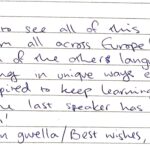 to see all of this
om all across Europe!
n of the others lang
ng in unique ways e
pired to keep learning
he last speaker has
n gwella/Best wishes,